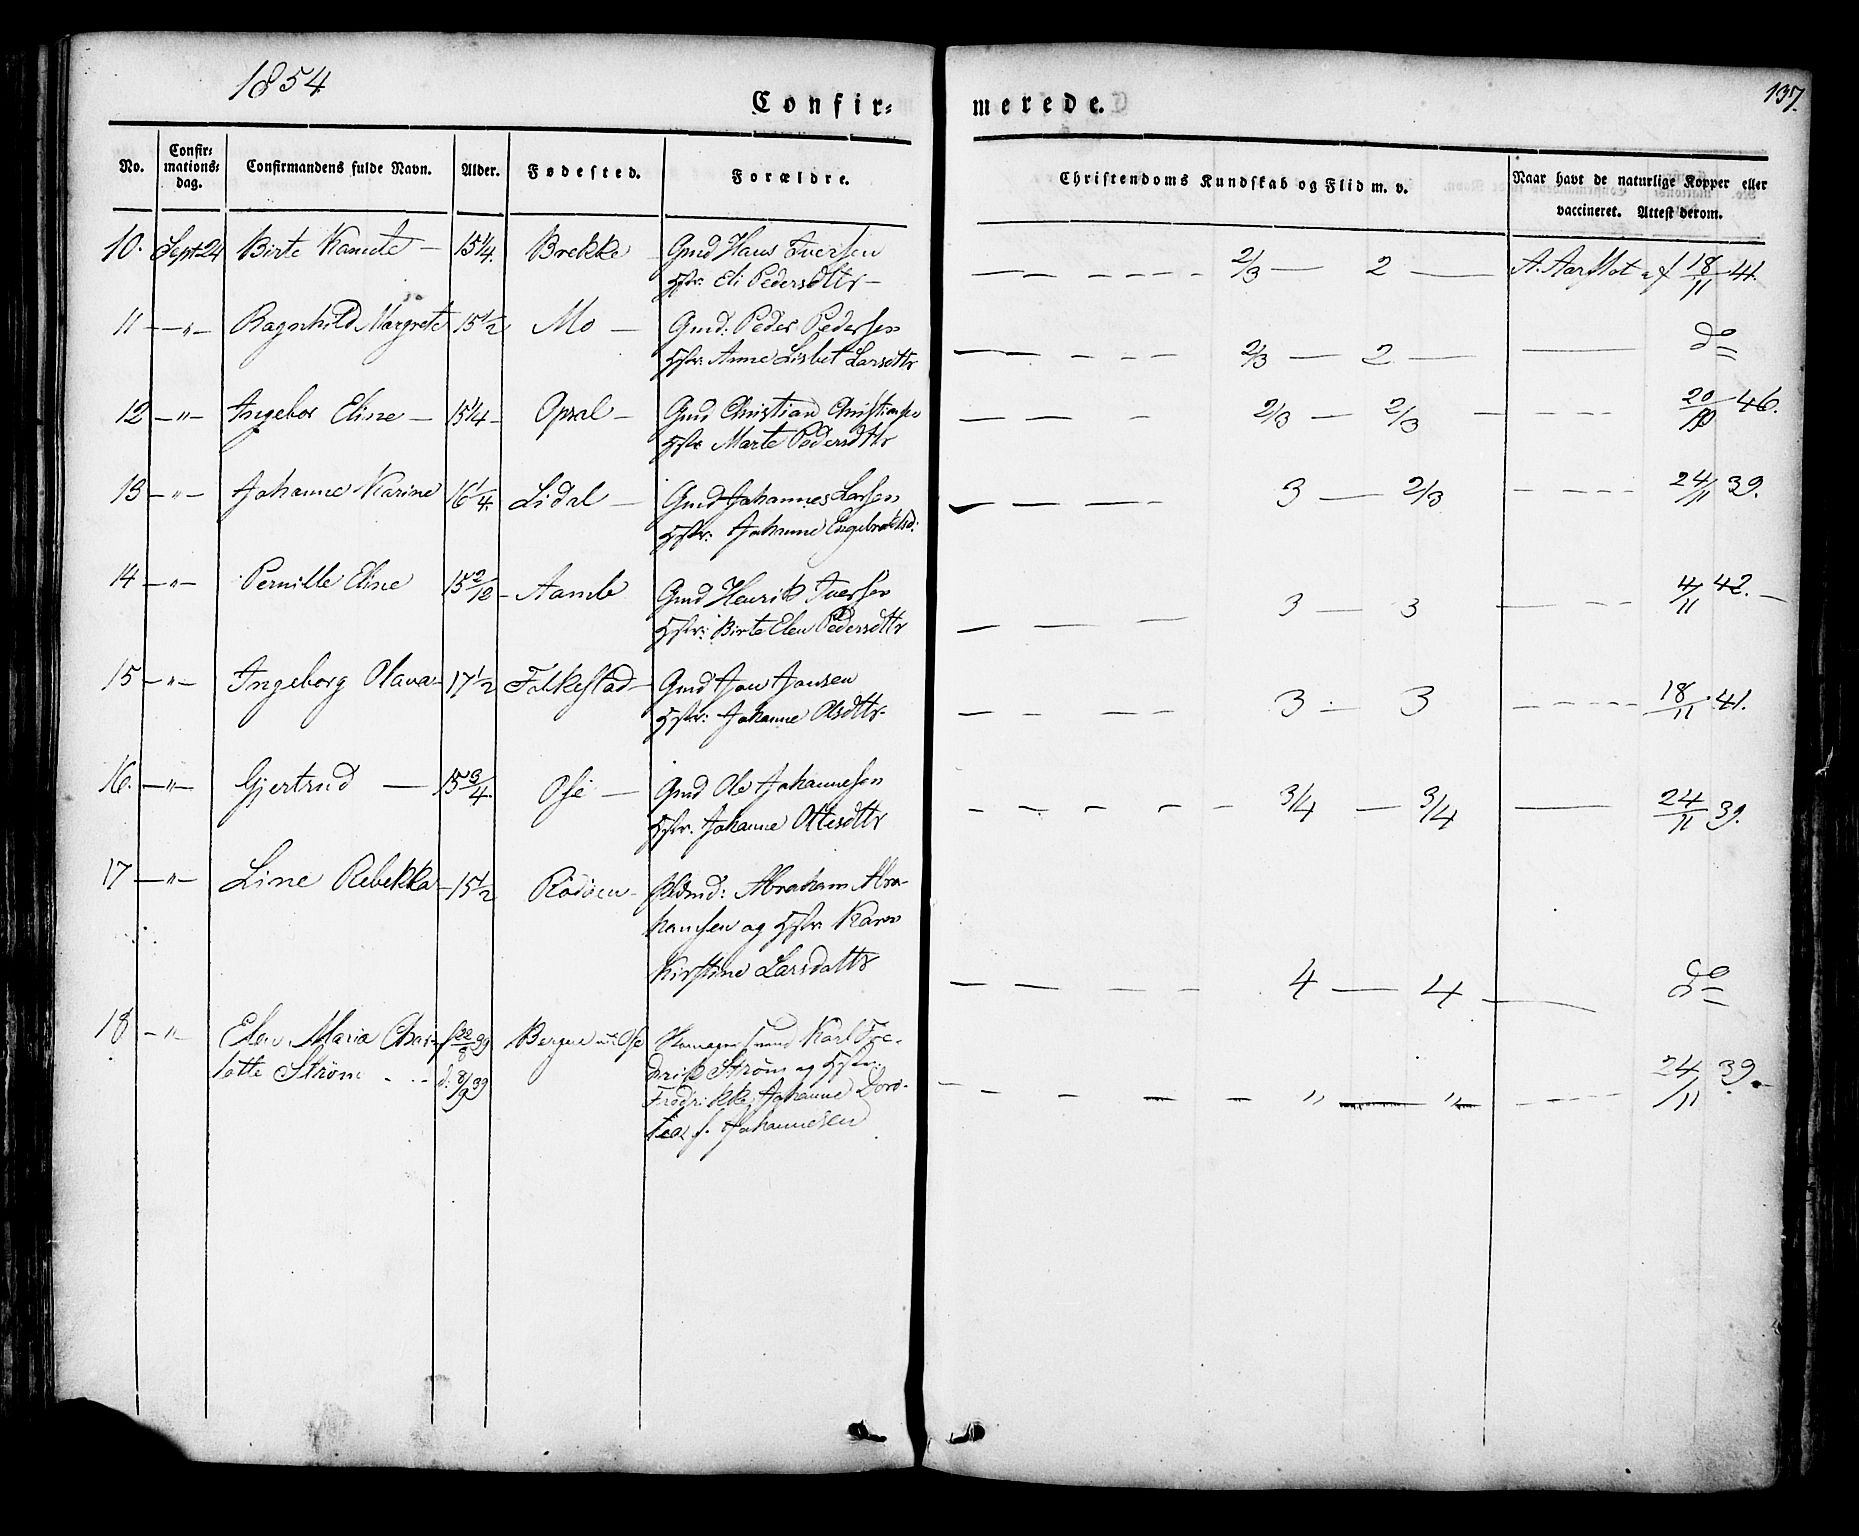 1854
Confir-
merede.
137.
No.
Confir-
mations-
dag.
Confirmandens fulde Navn.
Alder.
Fødested.
Forældre.
Christendoms Kundskab og Flid m. v.
Naar havt de naturlige Kopper eller
vaccineret. Attest derom.
10. Sept 24 Birte Kamele — 15 1/4. Brekke Gmd Hans Iversen
Hstr: Eli Pedersdttr — 2/3 — 2 — A. Aarflot af 18/11 41.
11 — „ — Ragnhild Margrete 15 1/2 Mo — Gmd: Peder Pedersen
Hstr: Anne Lisbet Larsdttr 2/3 — 2 — do
12 — „ — Ingebor Eline — 15 1/4 — Opsal — Gmd Christian Christiansen
Hstr Marte Pedersdttr 2/3 — 2/3 — 20/10 46.
13 — „ — Johanne Karine 16 1/4. Lidal — Gmd Johannes Larsen
Hstr: Johanne Engebretsd: 3 — 2/3 24/11 39.
14 — „ — Pernille Eline 15 2/12 — Aamb Gmd Henrik Iversen
Hstr: Birte Elen Pedersdttr 3 — 3 4/11 42. —
15 — „ — Ingeborg Olava — 17 1/2 Folkestad — Gmd Jon Jonsen
Hstr: Johanne Olsdttr. 3 — 3 18/11 41.
16. — „ — Gjertrud — 15 3/4. Ose — Gmd Ole Johannesen
Hstr. Johanne Ottesdttr 3/4 — 3/4 — 24/11 39.
17 — „ — Line Rebekka — 15 1/2 Rödöen — Abraham Abra-
hamsen og Hstr Karen
Kirstine Larsdattr 4 — 4 — do
18 — „ Elen Maria Char- f 22/8 39 Bergen Ose Karl Fre-
lotte Strøm d. 8/9 39 drik Strøm og Hstr.
Fredrikke Johanne Doro-
tea f. Johannesen „ — „ 24/11 39.